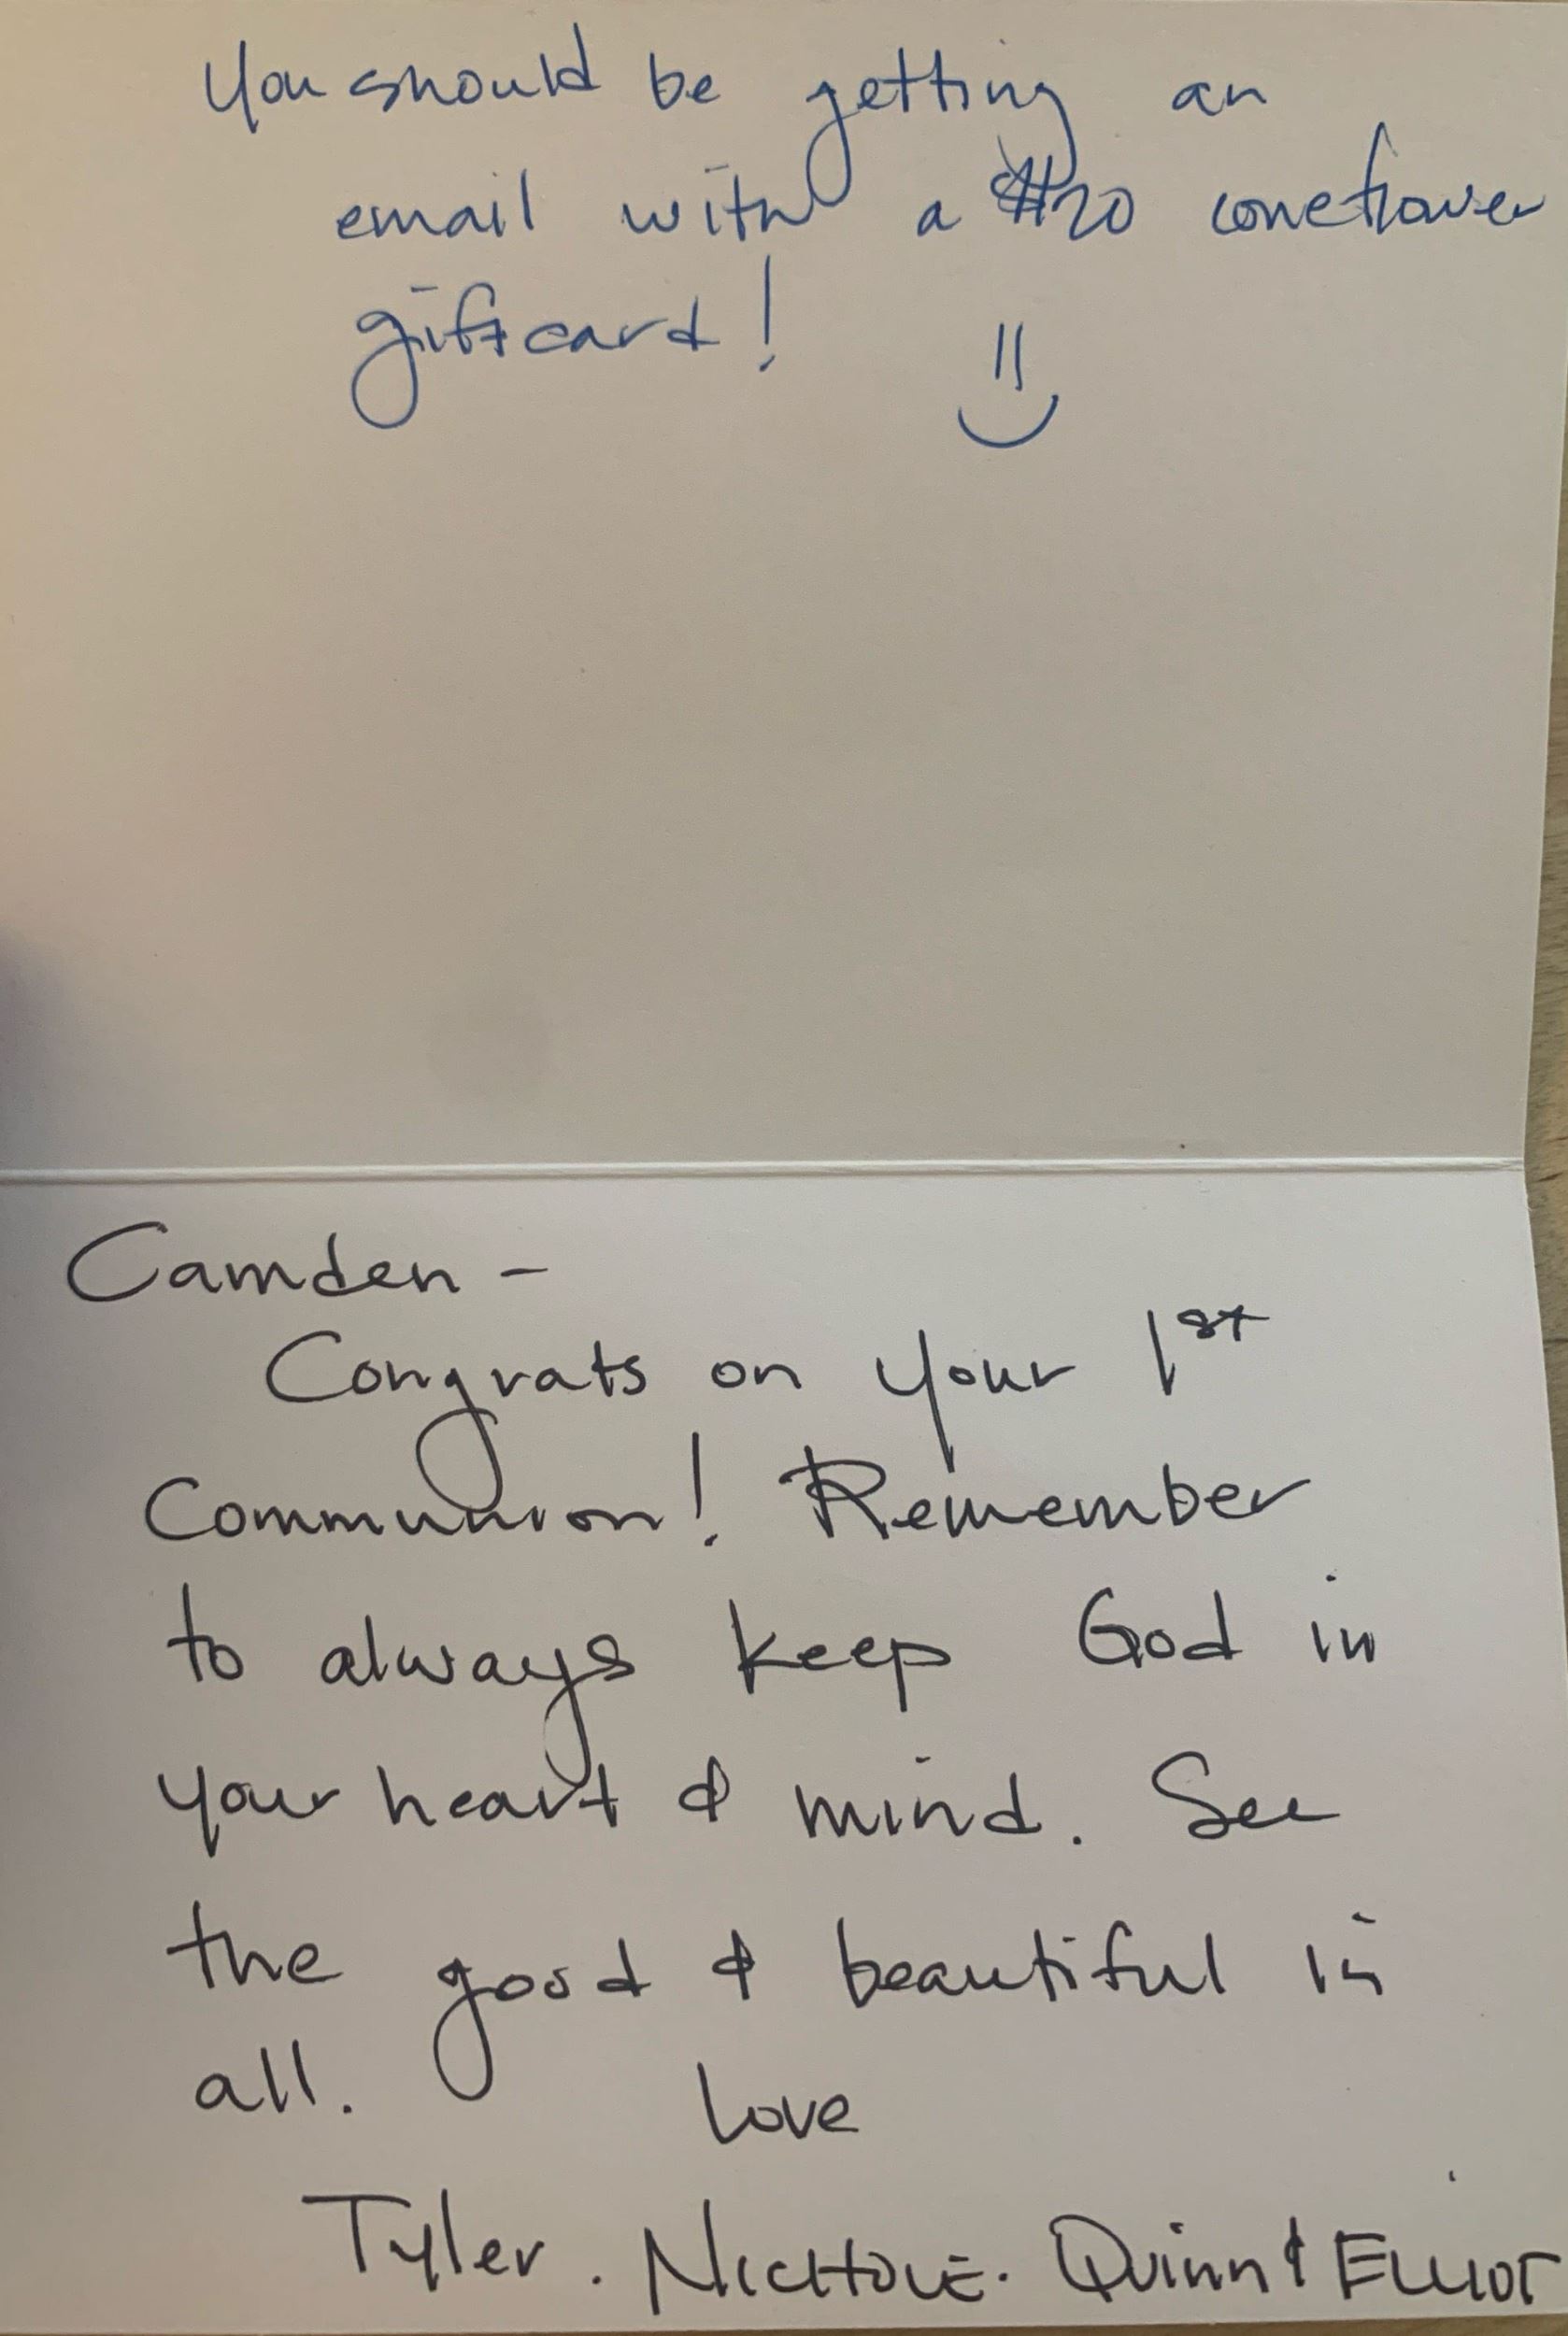 You should be getting an
email with a $20 coneflower
giftcard!
Camden -
Congrats on your 1st
Communion! Remember
to always keep God in
your heart & mind. See
the good & beautiful in
all. Love
Tyler. NICHOLE. Quinn & ELLIOT